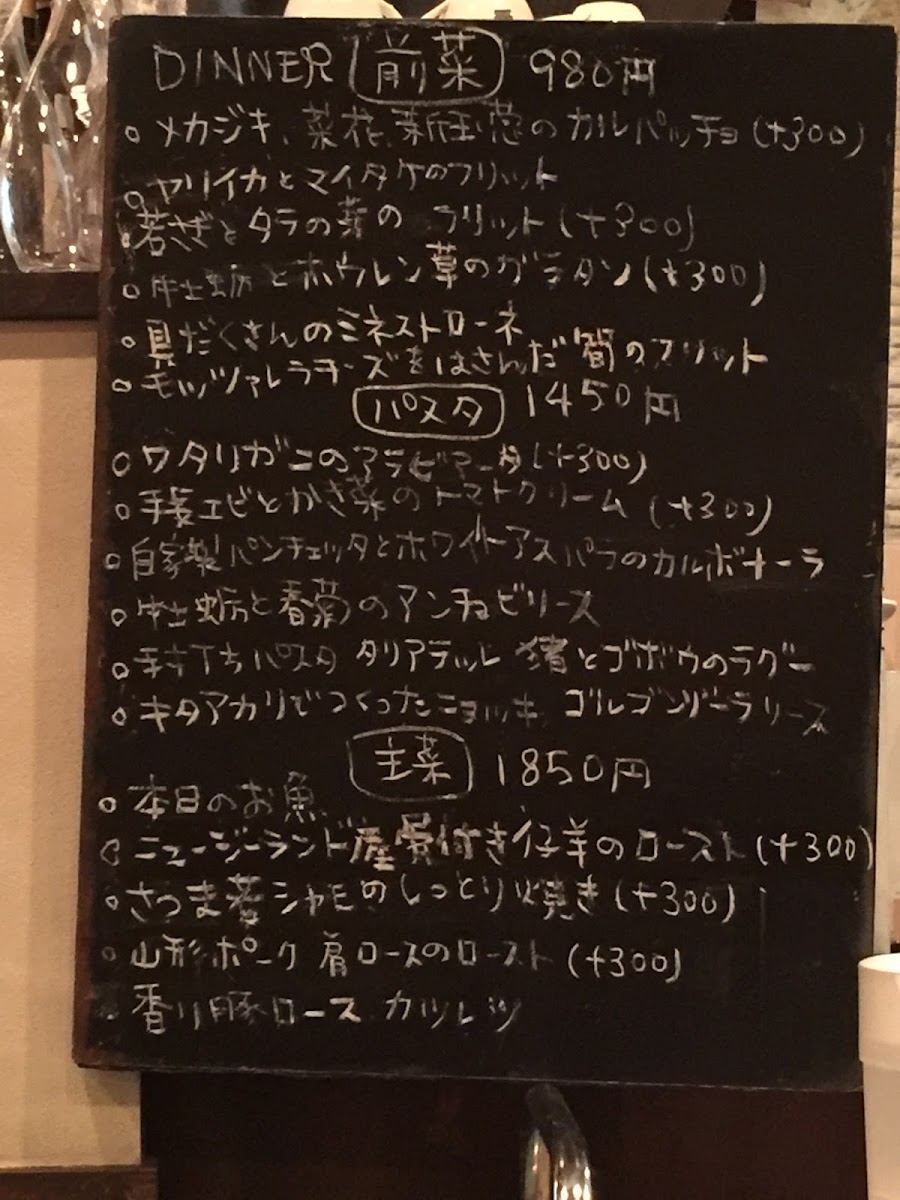 DINNER 前菜 980円
。メカジキ、菜花、新玉葱のカルパッチョ (+300)
。ヤリイカとマイタケのフリット
。若さぎとタラの芽の フリット (+300)
。牡蛎とホウレン草のグラタン (+300)
。具だくさんのミネストローネ
。モッツァレラチーズをはさんだ筍のフリット
パスタ 1450円
。ワタリガニのアラビアータ (+300)
。手長エビとかき菜のトマトクリーム (+300)
。自家製パンチェッタとホワイトアスパラのカルボナーラ
。牡蛎と春菊のアンチョビソース
。手打ちパスタ タリアテッレ 猪とゴボウのラグー
。キタアカリでつくったニョッキ ゴルゴンゾーラソース
主菜 1850円
。本日のお魚
。ニュージーランド産骨付き仔羊のロースト (+300)
。さつま シャモのしっとり焼き (+300)
。山形ポーク 肩ロースのロースト (+300)
。香り豚ロース カツレツ